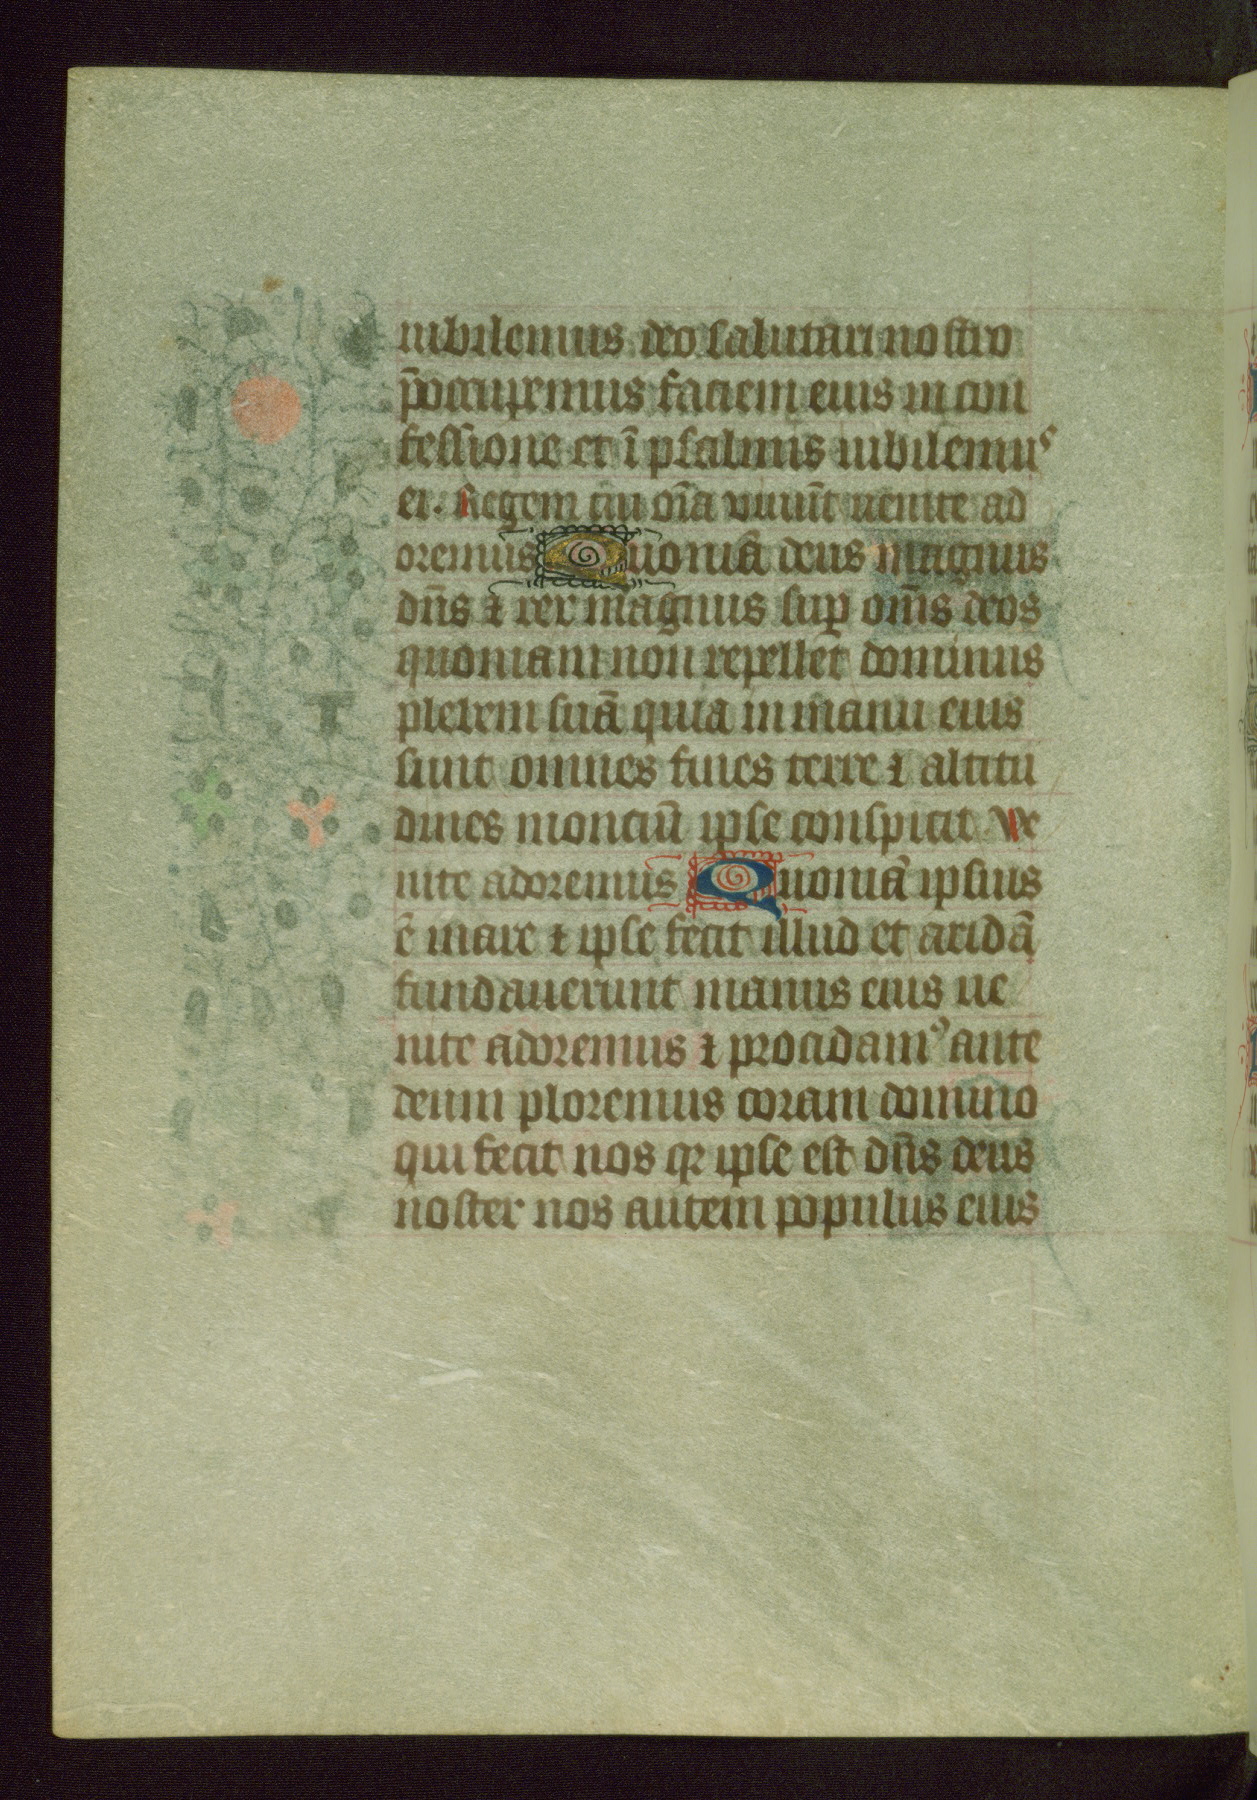 iubilemus deo salutari nostro
p̄occupemus faciem eius in con
fessione et ī psalmis iubilemus
ei. Regem cui oīa uiuūt uenite ad
oremus Quoniā deus magnus
dn̄s ⁊ rex magnus sup om̄s deos
quoniam non repellet dominus
plebem suā quia in manu eius
sunt omnes fines terre ⁊ altitu
dines montiū ipse conspicit Ve
nite adoremus Quoniā ipsius
ē mare ⁊ ipse fecit illud et aridā
fundauerunt manus eius ue
nite adoremus ⁊ procidamꝰ ante
deum ploremus coram domino
qui fecit nos qꝛ ipse est dn̄s deus
noster nos autem populus eius